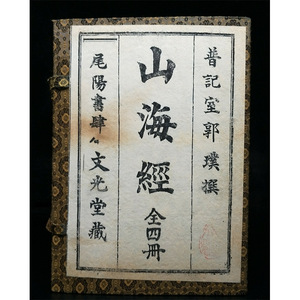 普記室郭璞撰
山海經
全四冊
尾陽書肆 文光堂藏